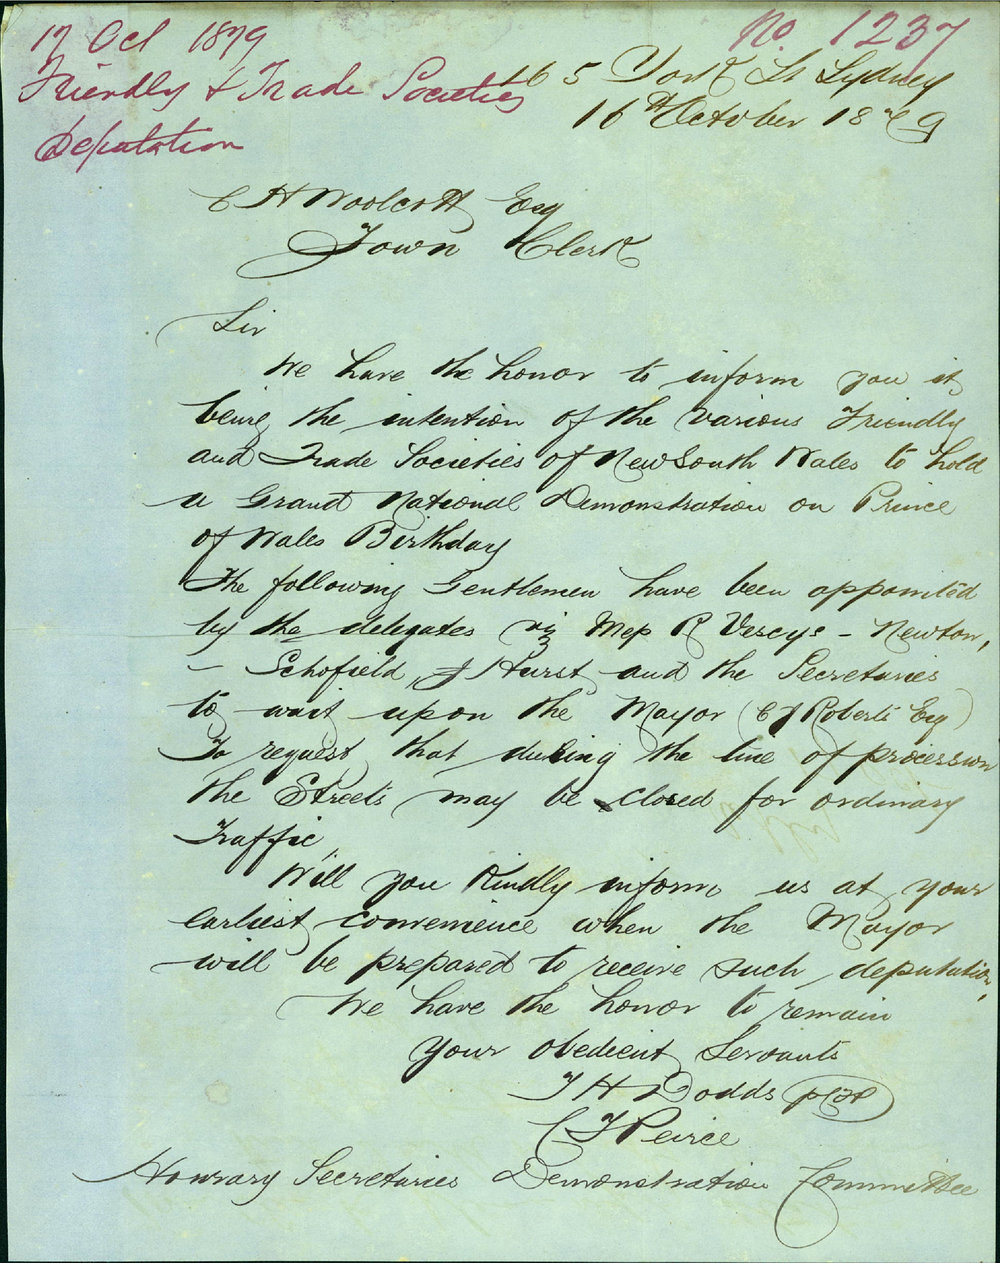 17 Oct 1879
No. 1237
Friendly & Trade Societies
Deputation
165 York St Sydney
16th October 1879
C H Woolcott Esq
Town Clerk
Sir
We have the honor to inform you it
being the intention of the various Friendly
and Trade Societies of New South Wales to hold
a Grand National Demonstration on Prince
of Wales Birthday
The following Gentlemen have been appointed
by the delegates viz Mess R Vescys - Newton,
- Schofield, J Hurst and the Secretaries
to wait upon the Mayor (C J Roberts Esq)
To request that during the line of procession
the Streets may be closed for ordinary
Traffic,
Will you Kindly inform us at your
earliest convenience when the Mayor
will be prepared to receive such deputation,
We have the honor to remain
your obedient Servants
J H Dodds
C J Peirce
Honrary Secretaries Demonstration Committee